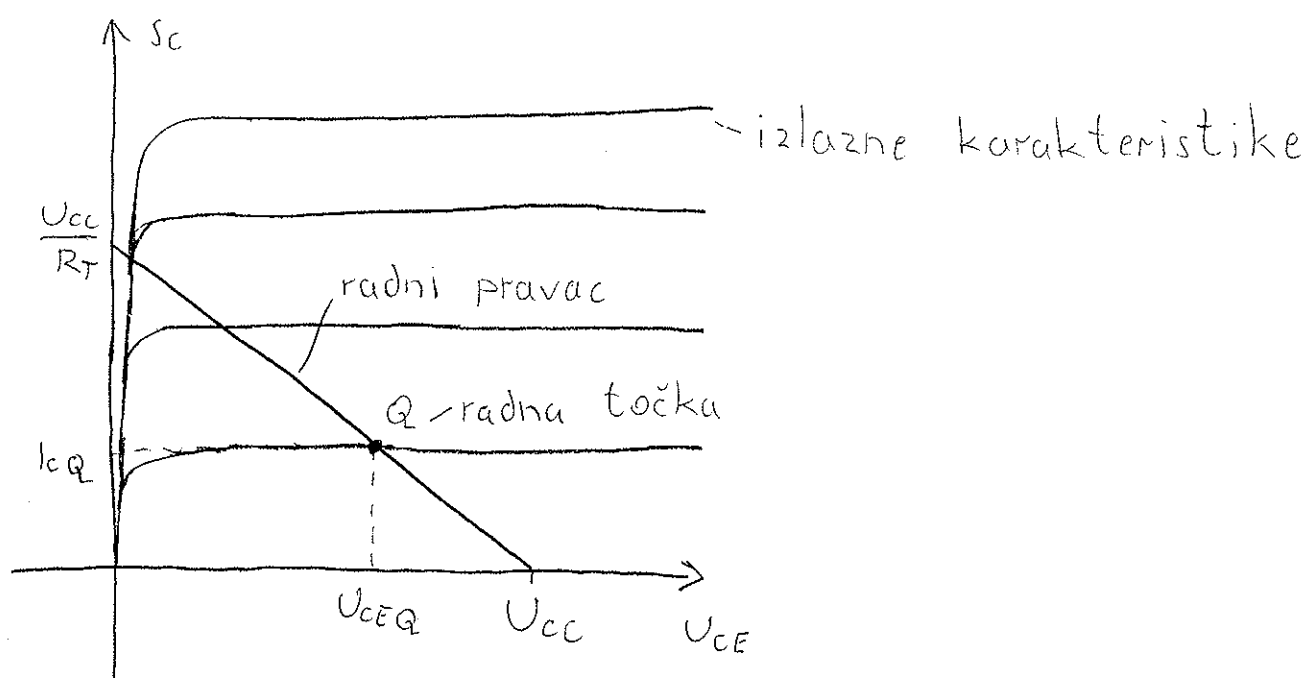 Sc
izlazne karakteristike
Ucc
RT
radni pravac
Q radna točka
IcQ
UCEQ
Ucc
UCE